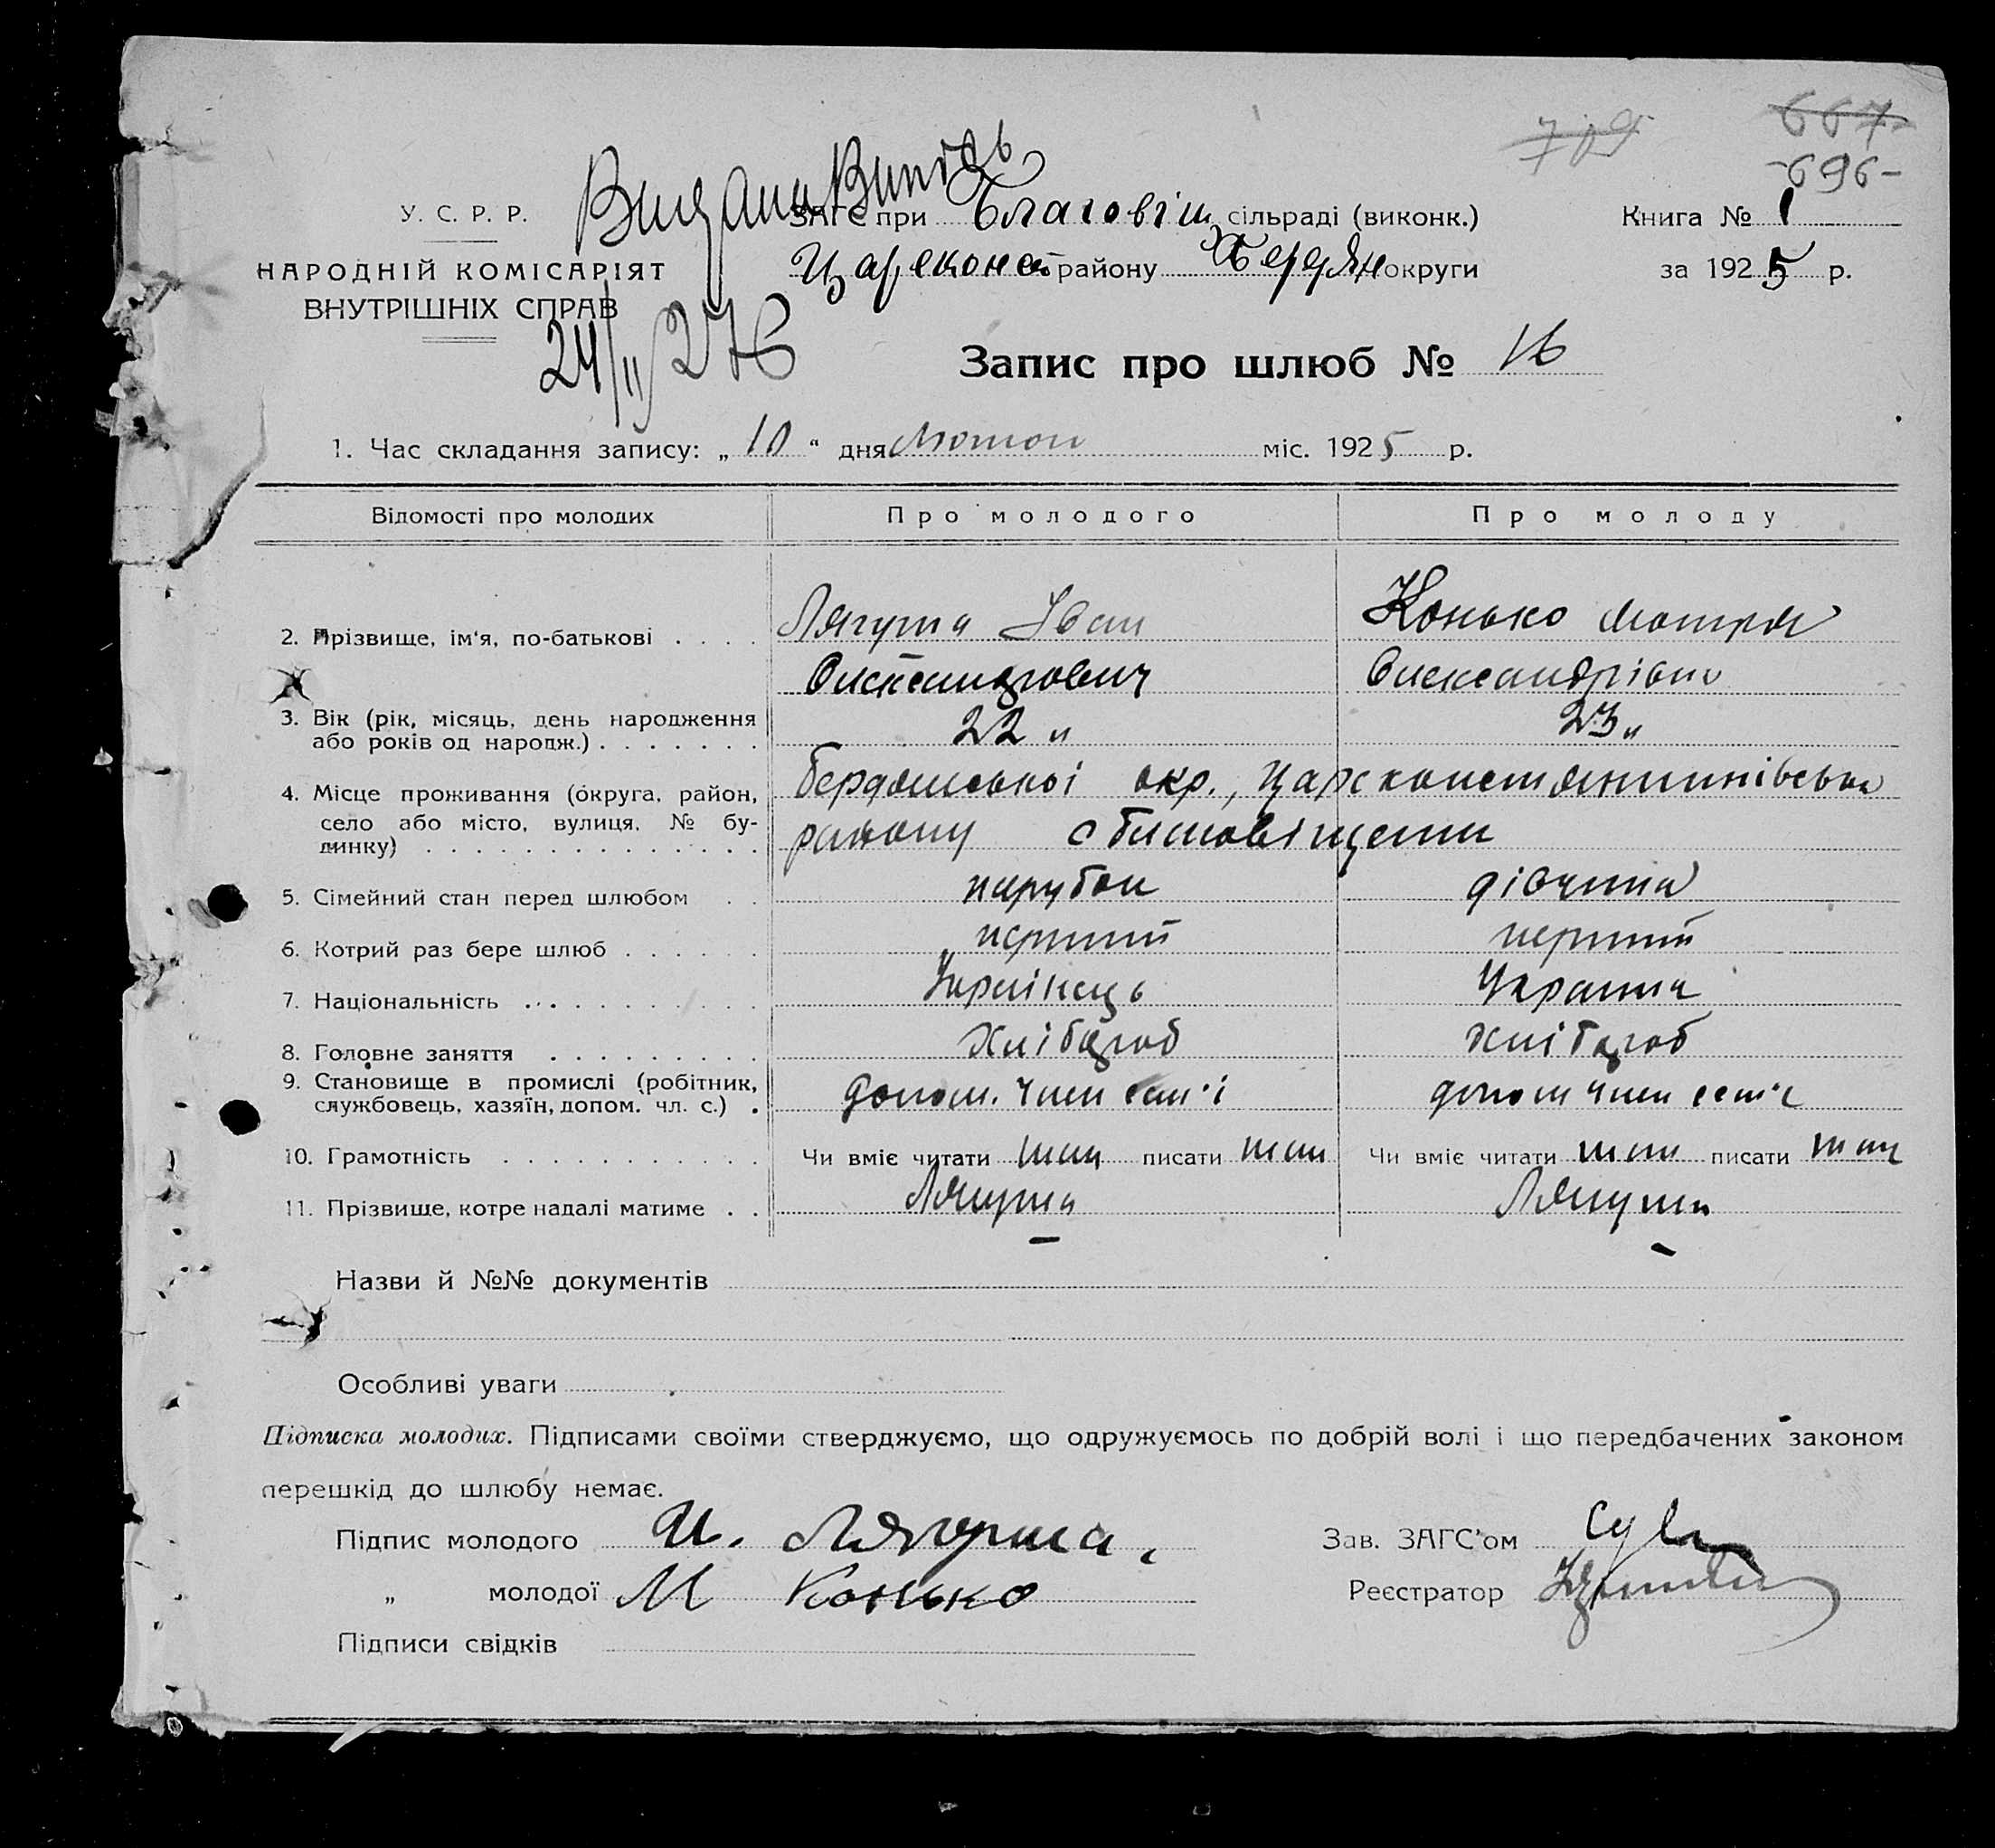 719
667
-696-
Видана Випісь
У. С. Р. Р.
ЗАГС при Благовіщ. сільраді (виконк.)
Книга № 1
НАРОДНІЙ КОМІСАРІЯТ
Цареконст району Бердян округи
за 1925 р.
ВНУТРІШНІХ СПРАВ
24/II 27
Запис про шлюб № 16
1. Час складання запису: „ 10 “ дня Лютои міс. 1925 р.
Відомості про молодих Про молодого Про молоду
2. Прізвище, ім'я, по-батькові . . . . Лягуша Іван Конько Мотря
Олександрович Олександрівна
3. Вік (рік, місяць, день народження
або років од народж.) . . . . . . . 22 „ 23 „
4. Місце проживання (округа, район, Бердянської окр., Царекопстянтинівська
село або місто, вулиця, № бу- району с Благовіщени
динку) . . . . . . . . . . . . . .
5. Сімейний стан перед шлюбом . . парубок дівчина
6. Котрий раз бере шлюб . . . . . . перший перший
7. Національність . . . . . . . . . Українець Украинка
8. Головне заняття . . . . . . . . . Хлібороб Хлібороб
9. Становище в промислі (робітник,
службовець, хазяїн, допом. чл. с.) . допом. член сем'ї допом член сем'ї
10. Грамотність . . . . . . . . . . . Чи вміє читати так писати так Чи вміє читати так писати так
11. Прізвище, котре надалі матиме . . Лягуша Лягуша
Назви й №№ документів
Особливі уваги
Підписка молодих. Підписами своїми стверджуємо, що одружуємось по добрій волі і що передбачених законом
перешкід до шлюбу немає.
Підпис молодого И. Лягуша.
Зав. ЗАГС'ом
„ молодої М Конько
Реєстратор
Підписи свідків